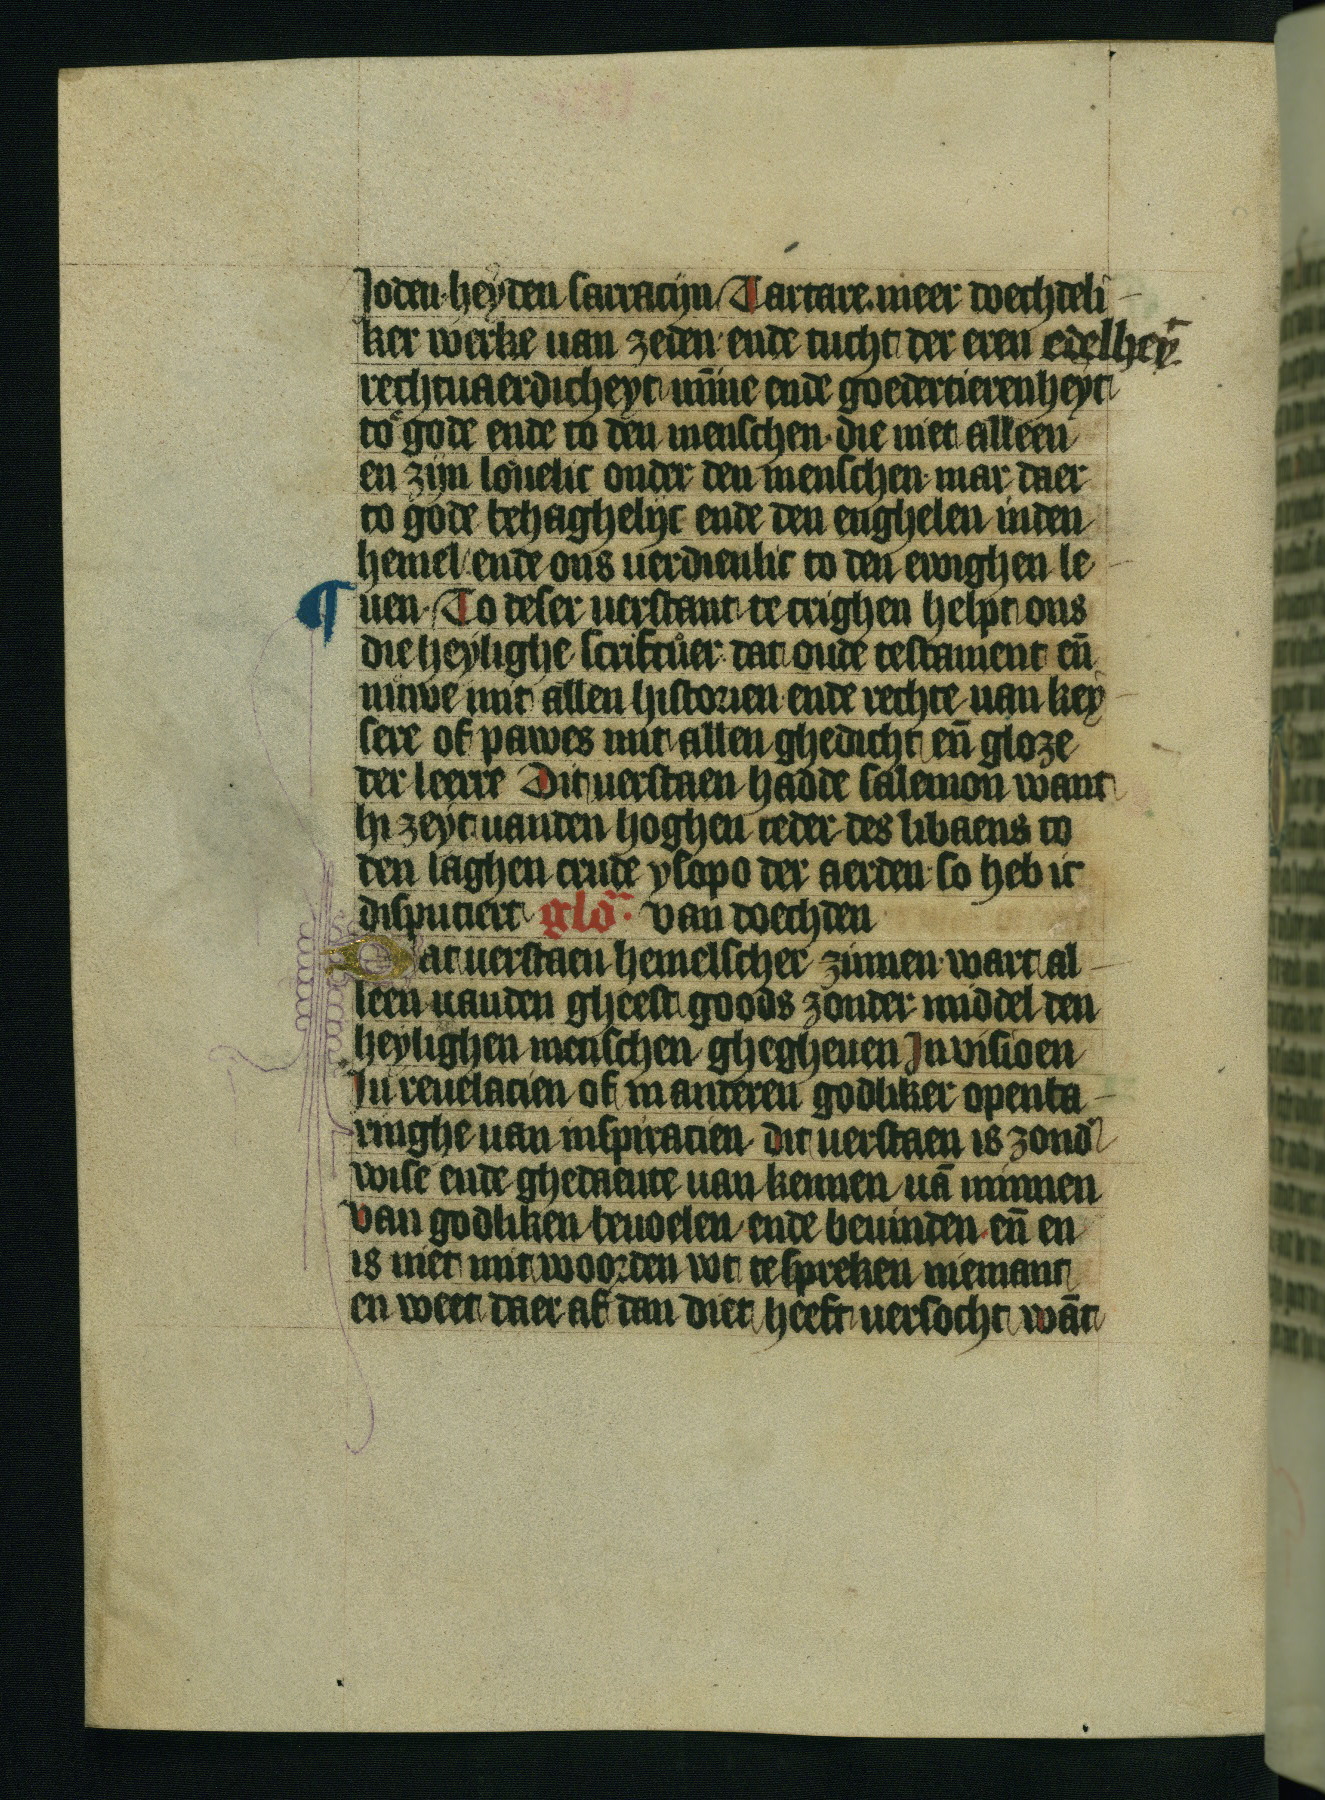 Joden heyden sarracijn Tartare. meer doechdeli
ker werke van zeden ende tucht der eren edelheyt̄
rechtuaerdicheyt mīne ende goedertierenheyt
to gode ende to den menschen. die niet alleen
en zijn louelic onder den menschen mar daer
to gode behaghelijc ende den enghelen inden
hemel ende ons uerdienlic to den ewighen le
¶ uen. To deser uerstant te crighen helpt ons
die heylighe scriftuer dat oude testament eñ
nuwe mit allen historien ende rechte uan key
sere of pawes mit allen ghedicht eñ gloze
der leerre Dit uerstaen hadde salemon want
hi zeyt uanden hoghen ceder des libaens to
den laghen crude ysopo der aerden so heb ic
disputiert glō. van doechden
Dat uerstaen hemelscher zinnen wart al
leen uanden gheest goods zonder middel den
heylighen menschen ghegheuen Jn visioen
Jn reuelacien of in anderen godliker openba
ringhe uan inspiracien dit uerstaen is zond'
wise ende ghedaente uan kennen uā minnen
van godliken beuoelen ende beuinden eñ en
is niet mit woorden wt te spreken niemant
en weet daer af dan diet heeft uersocht wāt